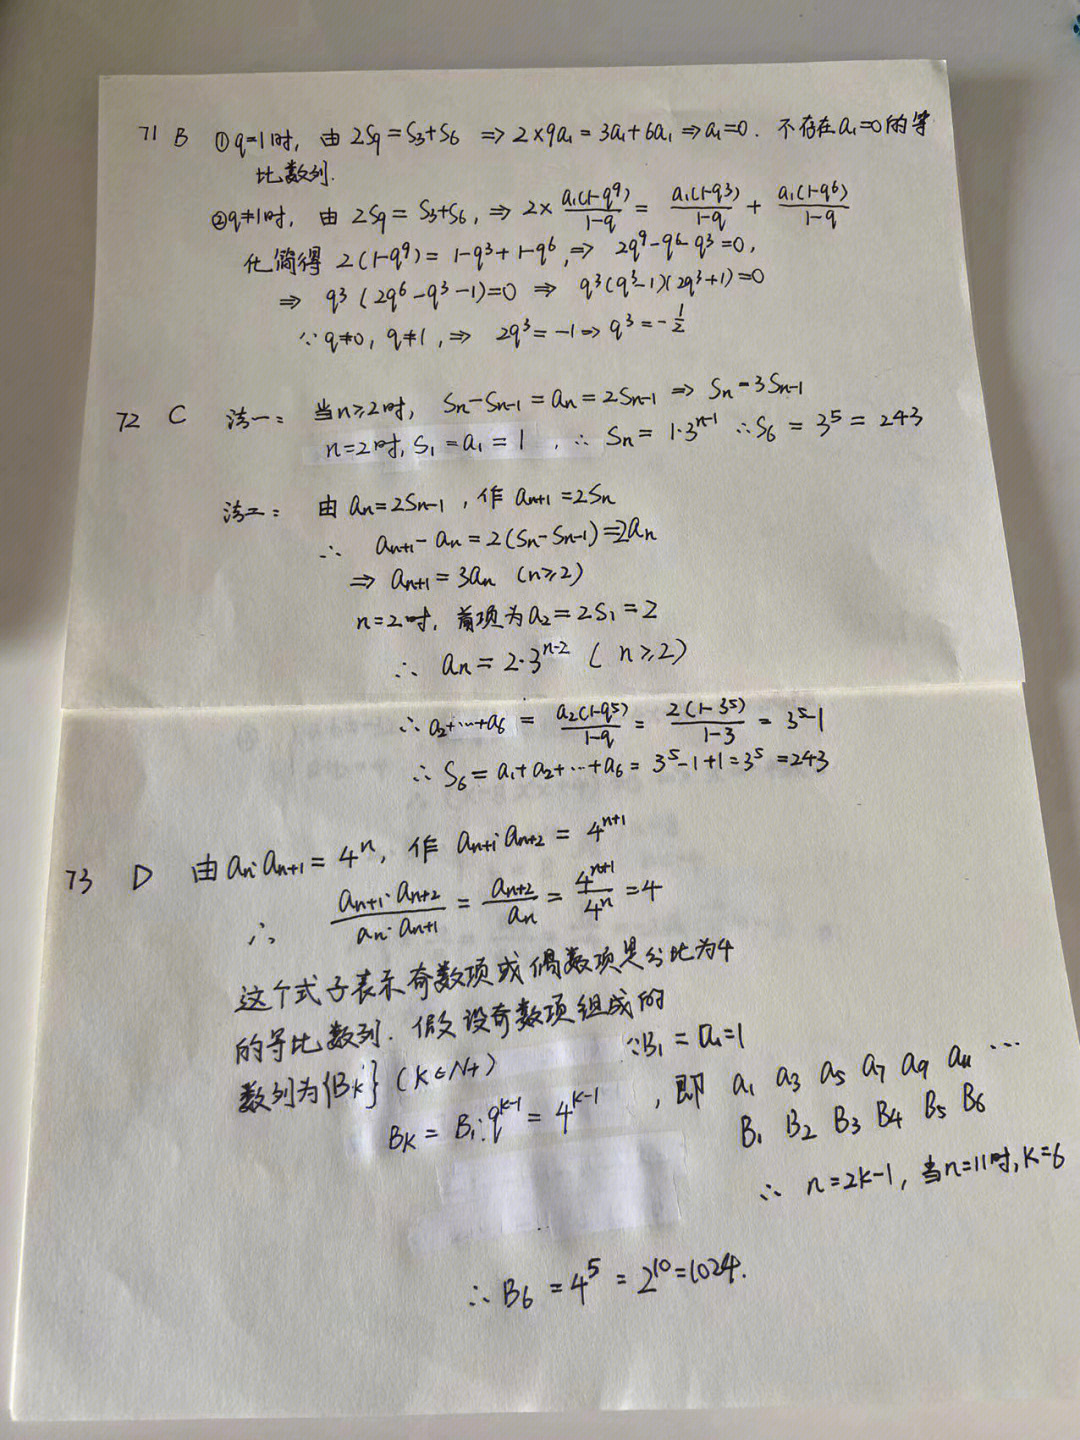 71 B ①q=1时, 由 2S9=S3+S6 ⇒ 2×9a1=3a1+6a1 ⇒ a1=0. 不存在a1=0的等
比数列.
②q≠1时, 由 2S9=S3+S6, ⇒ 2× a1(1-q^9)/(1-q) = a1(1-q^3)/(1-q) + a1(1-q^6)/(1-q)
化简得 2(1-q^9)=1-q^3+1-q^6, ⇒ 2q^9-q^6-q^3=0,
⇒ q^3(2q^6-q^3-1)=0 ⇒ q^3(q^3-1)(2q^3+1)=0
∵q≠0, q≠1, ⇒ 2q^3=-1 ⇒ q^3=-1/2
72 C 法一: 当n≥2时, Sn-Sn-1=an=2Sn-1 ⇒ Sn=3Sn-1
n=2时, S1=a1=1, ∴ Sn=1·3^(n-1) ∴S6=3^5=243
法二: 由 an=2Sn-1, 作 an+1=2Sn
∴ an+1-an=2(Sn-Sn-1)=2an
⇒ an+1=3an (n≥2)
n=2时, 首项为a2=2S1=2
∴ an=2·3^(n-2) (n≥2)
∴a2+…+a6 = a2(1-q^5)/(1-q) = 2(1-3^5)/(1-3) = 3^5-1
∴ S6=a1+a2+…+a6=3^5-1+1=3^5=243
73 D 由an·an+1=4^n, 作 an+1·an+2=4^(n+1)
∴ (an+1·an+2)/(an·an+1) = an+2/an = 4^(n+1)/4^n = 4
这个式子表示奇数项或偶数项是公比为4
的等比数列. 假设奇数项组成的
数列为{Bk} (K∈N+)
∵B1=a1=1
BK=B1·q^(k-1)=4^(k-1)
, 即 a1 a3 a5 a7 a9 a11 …
B1 B2 B3 B4 B5 B6
∴ n=2K-1, 当n=11时, K=6
∴ B6=4^5=2^10=1024.